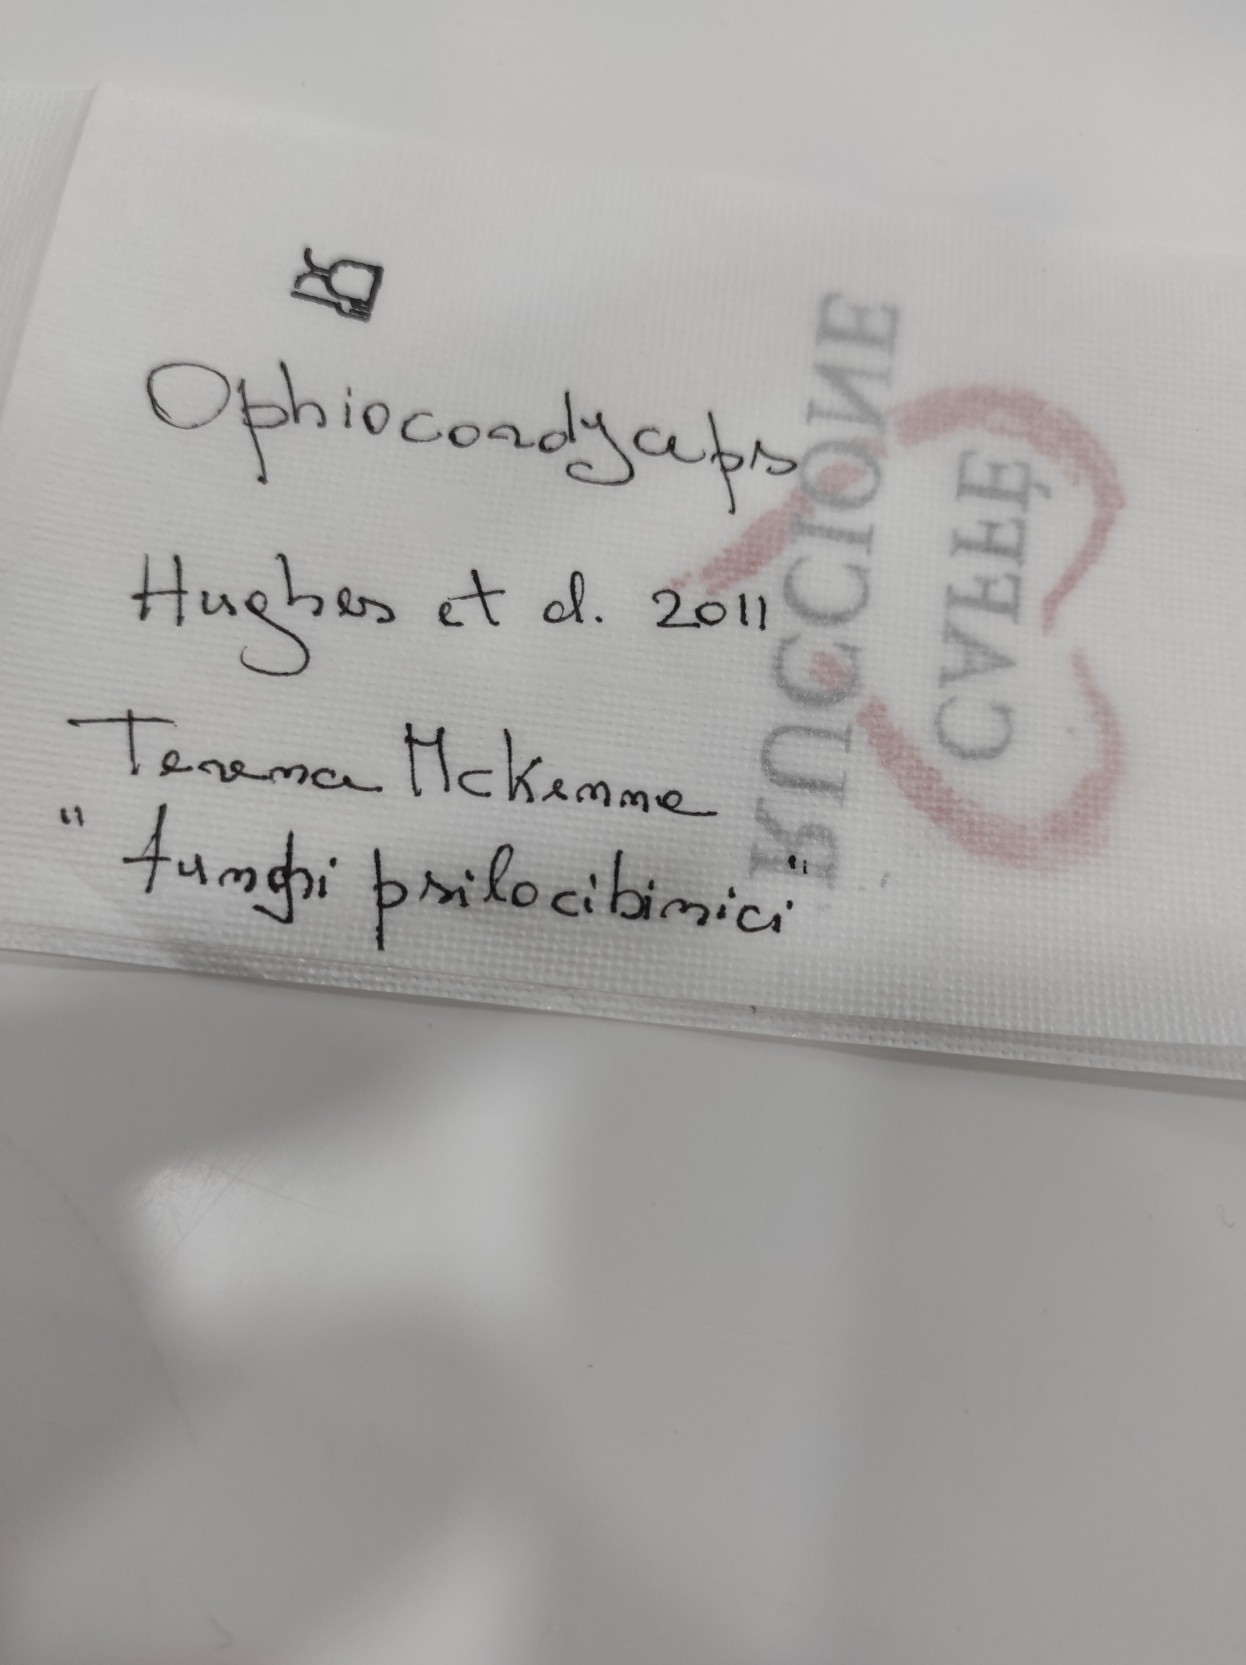 Ophiocordyceps
Hughes et al. 2011
Terence McKenna
"funghi psilocibinici"
RUCCIONE
CAFFÈ